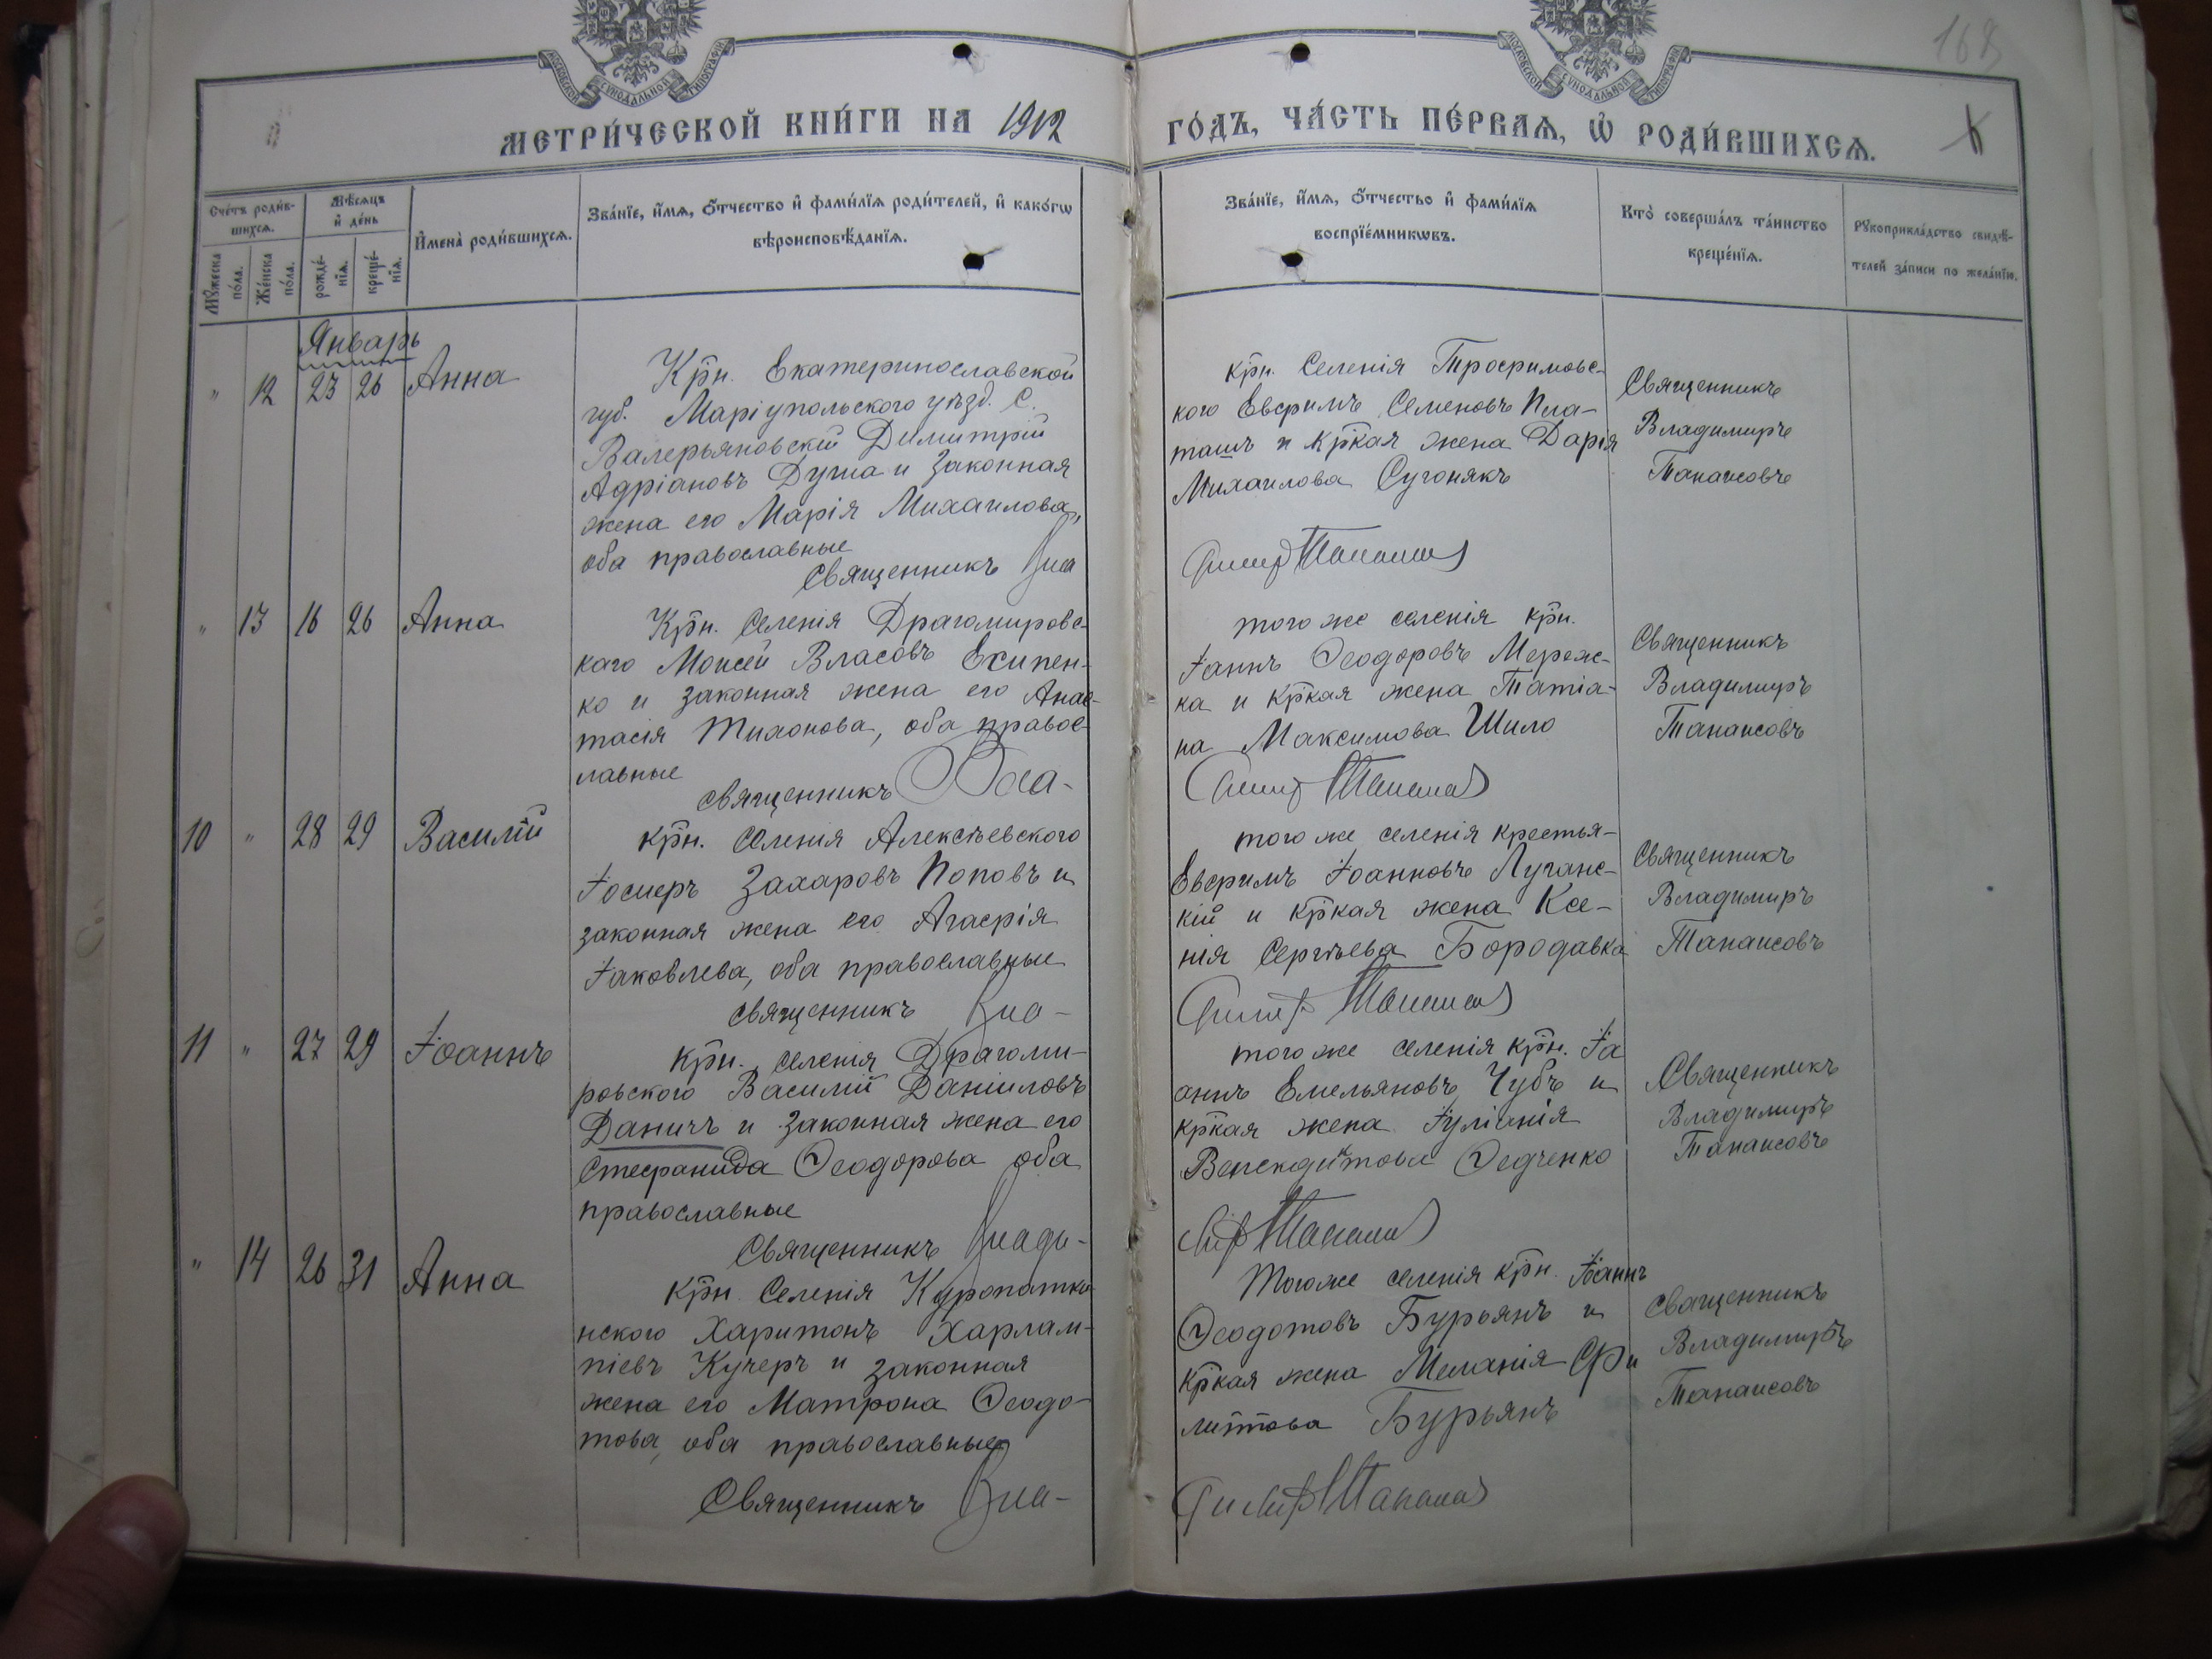 МОСКОВСКОЙ СѴНОДАЛЬНОЙ ТИПОГРАФІИ
МОСКОВСКОЙ СѴНОДАЛЬНОЙ ТИПОГРАФІИ
168
МЕТРИ́ЧЕСКОЙ КНИ́ГИ НА 1912
ГО́ДЪ, ЧА́СТЬ ПЕ́РВАѦ, Ѡ҆ РОДИ́ВШИХСѦ.
Сче́тъ роди́в-
шихсѧ.
Мѣ́сяцъ
и҆ де́нь
Мꙋ́жеска
по́ла.
Же́нска
по́ла.
рожде́-
нїѧ.
креще́-
нїѧ.
И҆мена̀ роди́вшихсѧ.
Зва́нїе, и҆́мѧ, ѻ҆́тчество и҆ фами́лїѧ роди́телей, и҆ како́гѡ
вѣроисповѣ́данїѧ.
Зва́нїе, и҆́мѧ, ѻ҆́тчество и҆ фами́лїѧ
воспрїе́мникѡвъ.
Кто̀ соверша́лъ та́инство
креще́нїѧ.
Рꙋкоприкла́дство свидѣ́-
телей за́писи по жела́нїю.
Январь
" 12 23 26 Анна
Крн. Екатеринославской
губ. Маріупольского уѣзд. С.
Валерьяновскій Димитрій
Адріановъ Душа и законная
жена его Марія Михаилова,
оба православные
Священникъ Вла
крн. Селенія Трофимовс-
кого Евфимъ Семеновъ Пла-
ташъ и кркая жена Дарія
Михаилова Сугонякъ
Священникъ
Владимиръ
Танаисовъ
" 13 16 26 Анна
Крн. Селенія Драгомировс-
каго Моисей Власовъ Есипен-
ко и законная жена его Анас-
тасія Тихонова, оба правос-
лавные
священникъ Вла-
того же селенія крн.
Іаннъ Ѳеодоровъ Мереж-
ка и кркая жена Татіа-
на Максимова Шило
Священникъ
Владимиръ
Танаисовъ
10 " 28 29 Василій
крн. Селенія Алексѣевского
Іосифъ Захаровъ Поповъ и
законная жена его Агафія
Іаковлева, оба православные
священникъ Вла-
того же селенія крестья-
Евфимъ Іоанновъ Луганс-
кій и кркая жена Ксе-
нія Сергѣева Бородавка
Священникъ
Владимиръ
Танаисовъ
11 " 27 29 Іоаннъ
крн. селенія Драгоми-
ровского Василій Даніиловъ
Даничъ и законная жена его
Стефанида Ѳеодорова оба
православные
Священникъ Влади-
того же селенія крн. Іа
аннъ Емельяновъ Чубъ и
кркая жена Іуліанія
Венедиктова Ѳедченко
Священникъ
Владимиръ
Танаисовъ
" 14 26 31 Анна
крн. Селенія Куропатки-
нского Харитонъ Харлам-
піевъ Кучеръ и законная
жена его Матрона Ѳеодо-
това, оба православные
Священникъ Вла-
Тогоже селенія крн. Іоаннъ
Ѳеодотовъ Бурьянъ и
кркая жена Меланія Фи
липпова Бурьянъ
Священникъ
Владимиръ
Танаисовъ